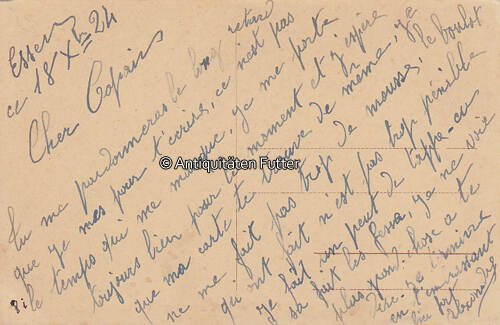 Essen
ce 18 Xbre 24
Cher Copain
Tu me pardonneras le long retard
que je mes pour t'écrire, ce n'est pas
le temps qui me manque, je me porte
toujours bien pour le moment et j'espère
que ma carte te trouve de même, je
ne me fait pas trop de mousse, le boulot
qu'ont fait n'est pas trop pénible
je fait un peu de
sa fait les je ne vois
plus grand chose a te
dire. je termine
en
© Antiquitäten Futter